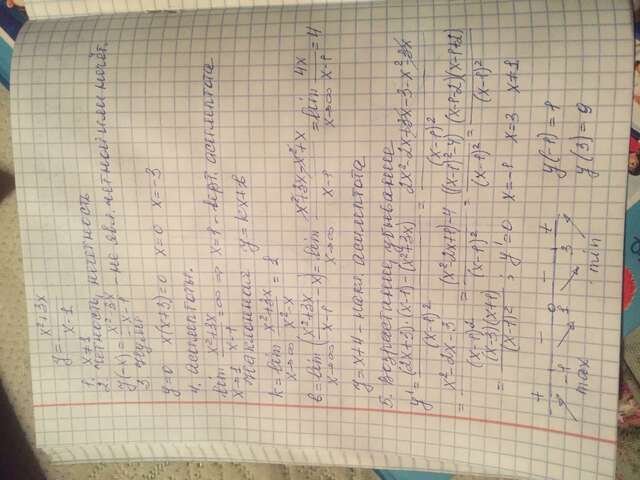 y = x²+3x / x-1
1. x≠1
2. четность, нечетность
y(-x) = x²-3x / -x-1 - не явл. четной или нечёт.
3.
y=0 x(x+3)=0 x=0 x=-3
4. асимптоты.
lim x→1 x²+3x / x-1 = ∞ ⇒ x=1 - верт. асимптота
наклонная y=kx+b
k = lim x→∞ x²+3x / x²-x = 1
b = lim x→∞ (x²+3x / x-1 - x) = lim x→∞ x²+3x-x²+x / x-1 = lim x→∞ 4x / x-1 = 4
y=x+4 - накл. асимптота
5. Возрастание, убывание
y' = (2x+3)·(x-1)-(x²+3x) / (x-1)² = 2x²-2x+3x-3-x²-3x / (x-1)²
= x²-2x-3 / (x-1)² = (x²-2x+1)-4 / (x-1)² = ((x-1)²-4) / (x-1)² = (x-1-2)(x-1+2) / (x-1)²
= (x-3)(x+1) / (x-1)² ; y'=0 x=-1 x=3 x≠1
+ - - +
-1 1 3
max min
y(-1)=1
y(3)=9